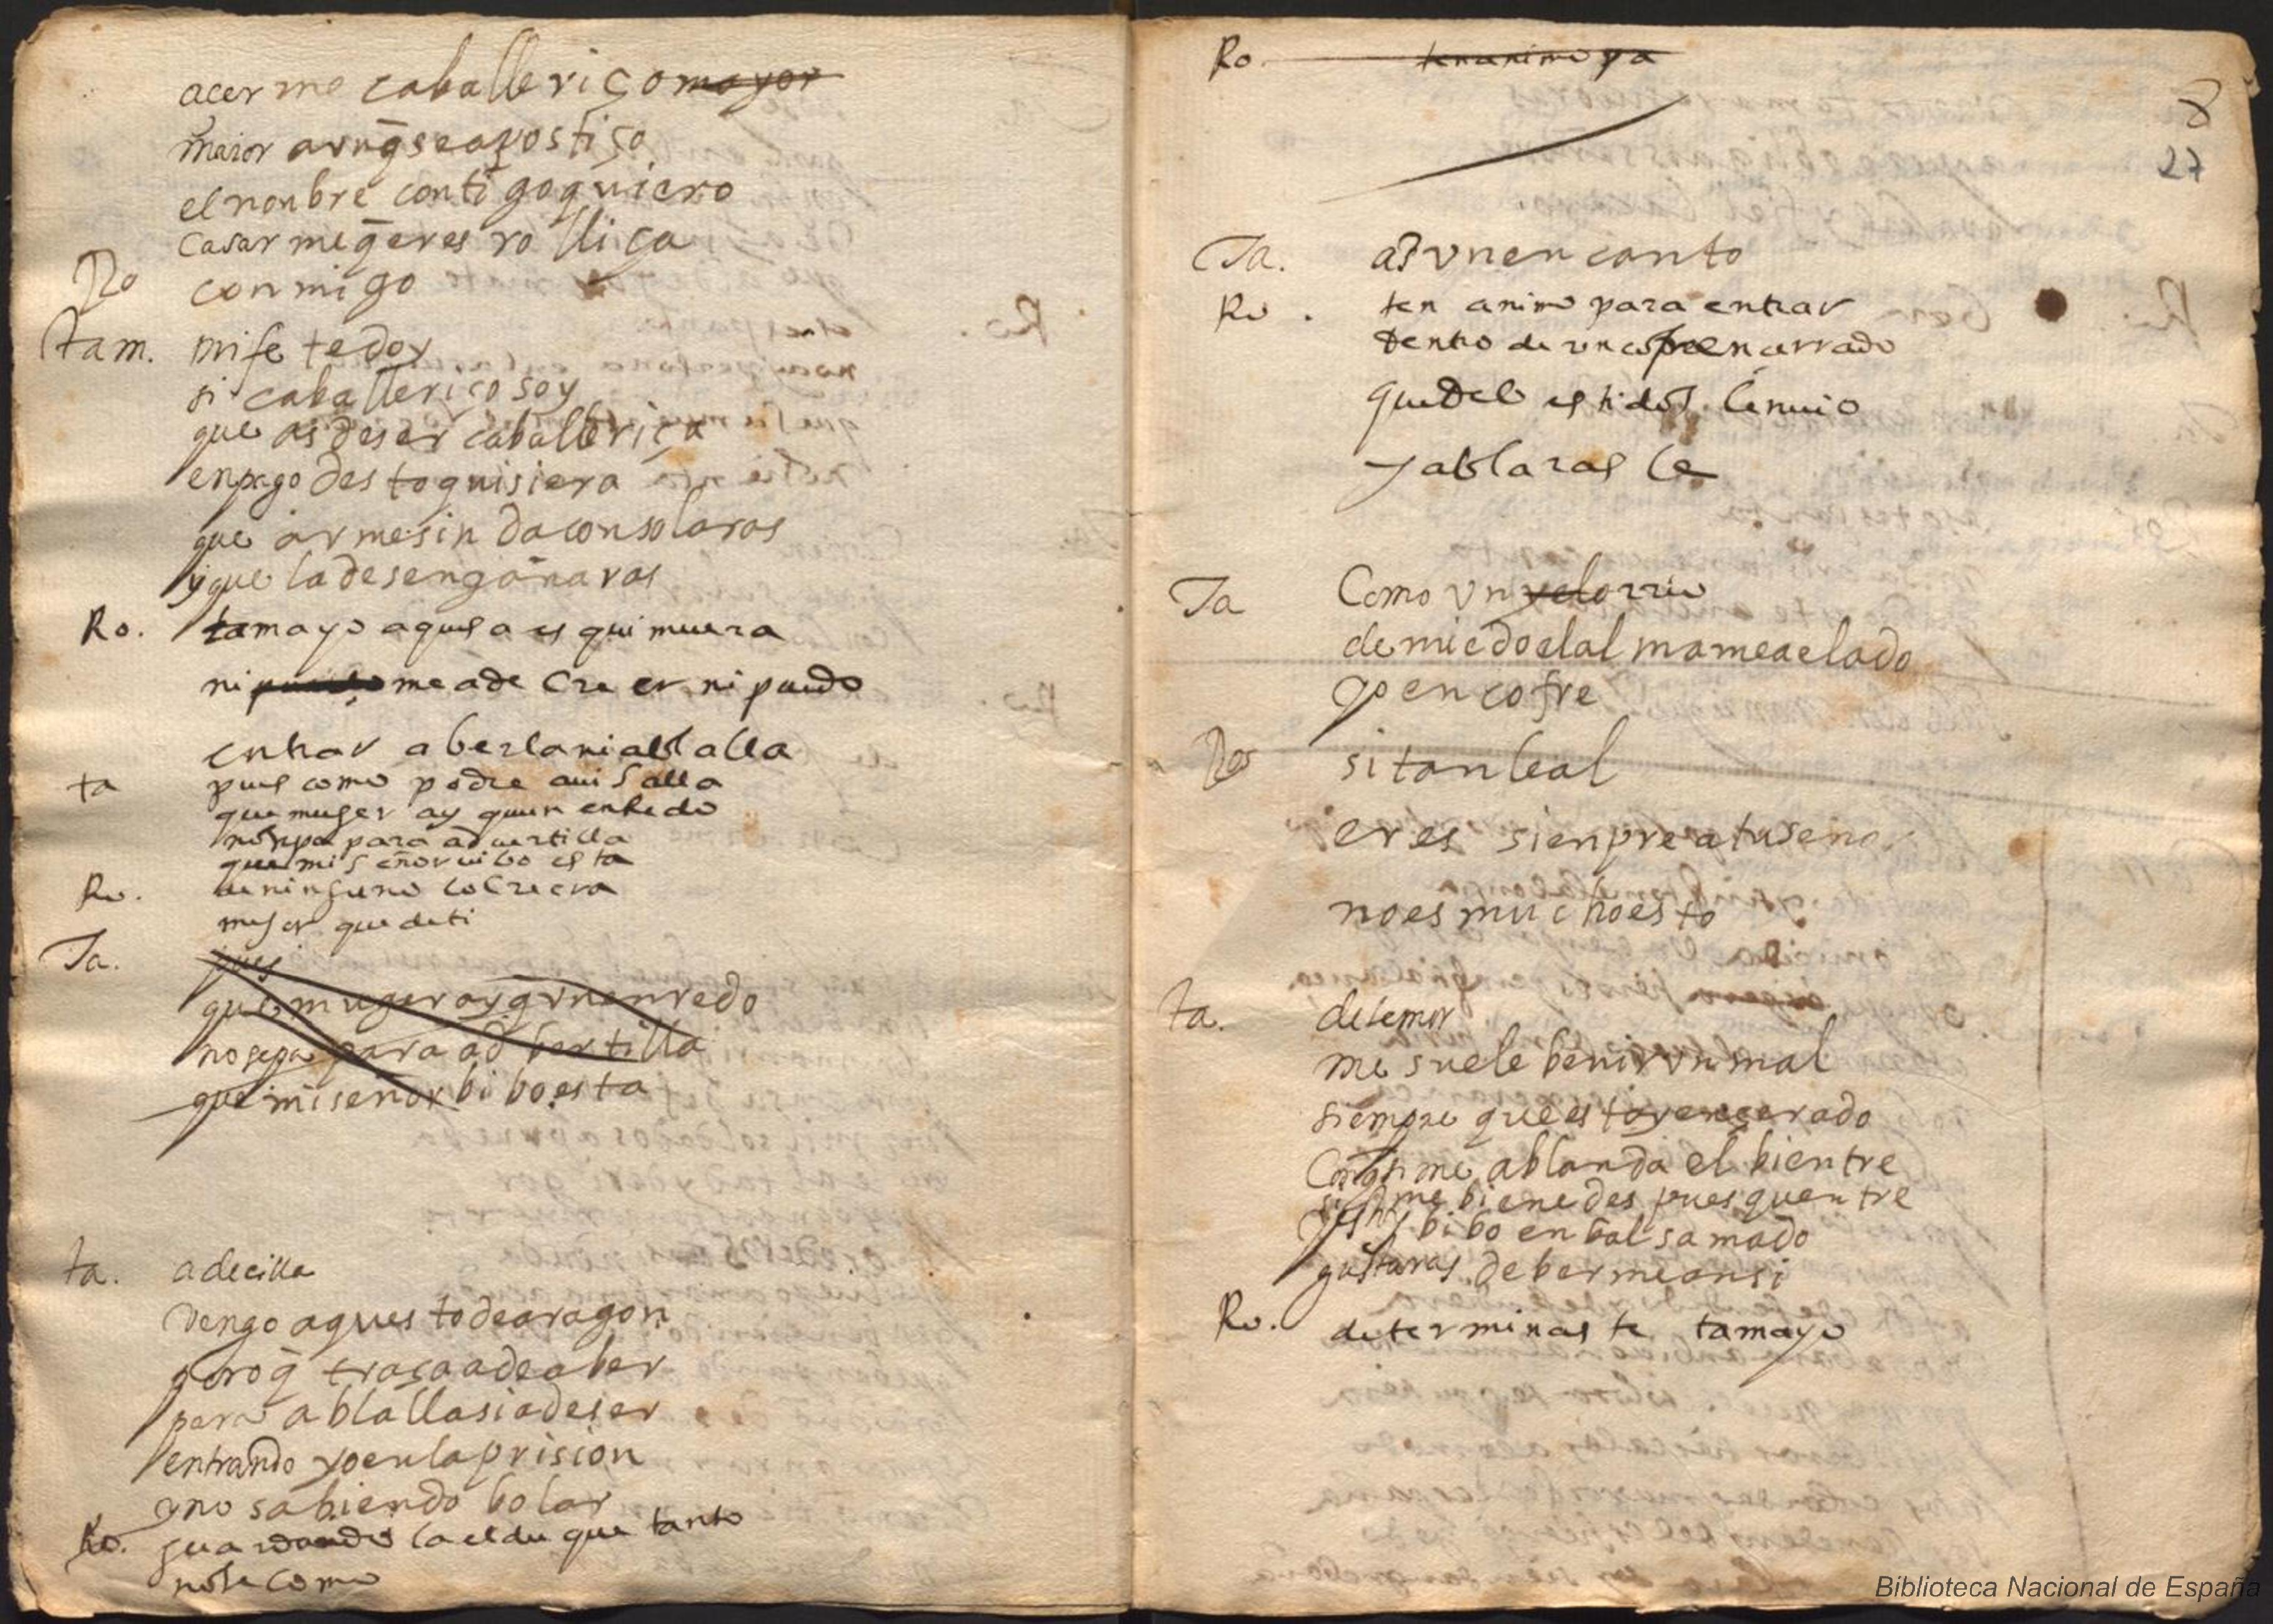 acer me caballeriço mayor
maior avnq̄ sea postiço
el nonbre contigo quiero
casar me q̄ eres rolliça
Ro conmigo
tam. mi fe te doy
si caballeriço soy
que as de ser caballeriça
en pago desto quisiera
que a armesinda consolaras
y que la desengañaras
Ro. tamayo aquesa es quimera
ni me a de creer ni puedo
entrar a berla ni ablalla
ta pues como podre auisalla
que muger ay quien enredo
no sepa para aduertilla
que mi señor uibo esta
Ro. de ninguno lo creera
mejor que de ti
Ta. pues
que muger ay q̄ vn enredo
no sepa para adbertilla
que mi señor bibo esta
ta. a decilla
vengo aquesto de aragon
pero q̄ traça a de aber
para ablalla si a de ser
entrando yo en la prision
y no sabiendo bolar
Ro. guardandola el duque tanto
no se como
Ro. ten animo ya
8
27
Ta. as vn encanto
Ro. ten animo para entrar
dentro de vn cofre encerrado
que de bestidos le enuio
y ablaras le
Ta Como vn yelo rrio
de miedo el alma me a elado
yo en cofre
Ro si tan leal
eres sienpre a tu señor
no es mucho esto
ta. de temor
me suele benir vn mal
siempre que estoy encerado
Con q̄ se me ablanda el bientre
si me biene despues que entre
y estoy bibo enbalsamado
gustaras de berme ansi
Ro. determinaste tamayo
Biblioteca Nacional de España